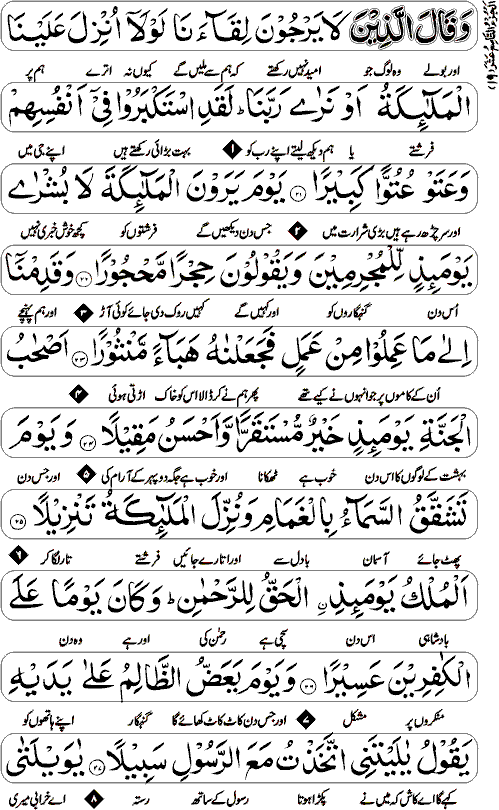 الجزء التاسع عشر (۱۹)
وَقَالَ الَّذِیْنَ لَا یَرْجُوْنَ لِقَآءَنَا لَوْلَاۤ اُنْزِلَ عَلَیْنَا
اور بولے وہ لوگ جو امید نہیں رکھتے کہ ہم سے ملیں گے کیوں نہ اترے ہم پر
الْمَلٰٓئِكَةُ اَوْ نَرٰی رَبَّنَا ؕ لَقَدِ اسْتَكْبَرُوْا فِیْۤ اَنْفُسِهِمْ
فرشتے یا ہم دیکھ لیتے اپنے رب کو ۱ بہت بڑائی رکھتے ہیں اپنے جی میں
وَعَتَوْ عُتُوًّا كَبِیْرًا ۲۱ یَوْمَ یَرَوْنَ الْمَلٰٓئِكَةَ لَا بُشْرٰی
اور سر چڑھ رہے ہیں بڑی شرارت میں ۲ جس دن دیکھیں گے فرشتوں کو کچھ خوشخبری نہیں
یَوْمَئِذٍ لِّلْمُجْرِمِیْنَ وَیَقُوْلُوْنَ حِجْرًا مَّحْجُوْرًا ۲۲ وَقَدِمْنَاۤ
اُس دن گنہگاروں کو اور کہیں گے کہیں روک دی جائے کوئی آڑ ۳ اور ہم پہنچے
اِلٰی مَا عَمِلُوْا مِنْ عَمَلٍ فَجَعَلْنٰهُ هَبَآءً مَّنْثُوْرًا ۲۳ اَصْحٰبُ
اُن کے کاموں پر جو انہوں نے کیے تھے پھر ہم نے کر ڈالا اس کو خاک اڑتی ہوئی ۴
الْجَنَّةِ یَوْمَئِذٍ خَیْرٌ مُّسْتَقَرًّا وَّاَحْسَنُ مَقِیْلًا ۲۴ وَیَوْمَ
بہشت کے لوگوں کا اس دن خوب ہے ٹھکانا اور خوب ہے جگہ دوپہر کے آرام کی ۵ اور جس دن
تَشَقَّقُ السَّمَآءُ بِالْغَمَامِ وَنُزِّلَ الْمَلٰٓئِكَةُ تَنْزِیْلًا ۲۵
پھٹ جائے آسمان بادل سے اور اتارے جائیں فرشتے تار لگا کر ۶
اَلْمُلْكُ یَوْمَئِذِ ِ۟الْحَقُّ لِلرَّحْمٰنِ ؕ وَكَانَ یَوْمًا عَلَی
بادشاہی اس دن سچی ہے رحمٰن کی اور ہے وہ دن
الْكٰفِرِیْنَ عَسِیْرًا ۲۶ وَیَوْمَ یَعَضُّ الظَّالِمُ عَلٰی یَدَیْهِ
منکروں پر مشکل ۷ اور جس دن کاٹ کاٹ کھائے گا گنہگار اپنے ہاتھوں کو
یَقُوْلُ یٰلَیْتَنِی اتَّخَذْتُ مَعَ الرَّسُوْلِ سَبِیْلًا ۲۷ یٰوَیْلَتٰی
کہے گا اے کاش کہ میں نے پکڑا ہوتا رسول کے ساتھ رستہ ۸ اے خرابی میری